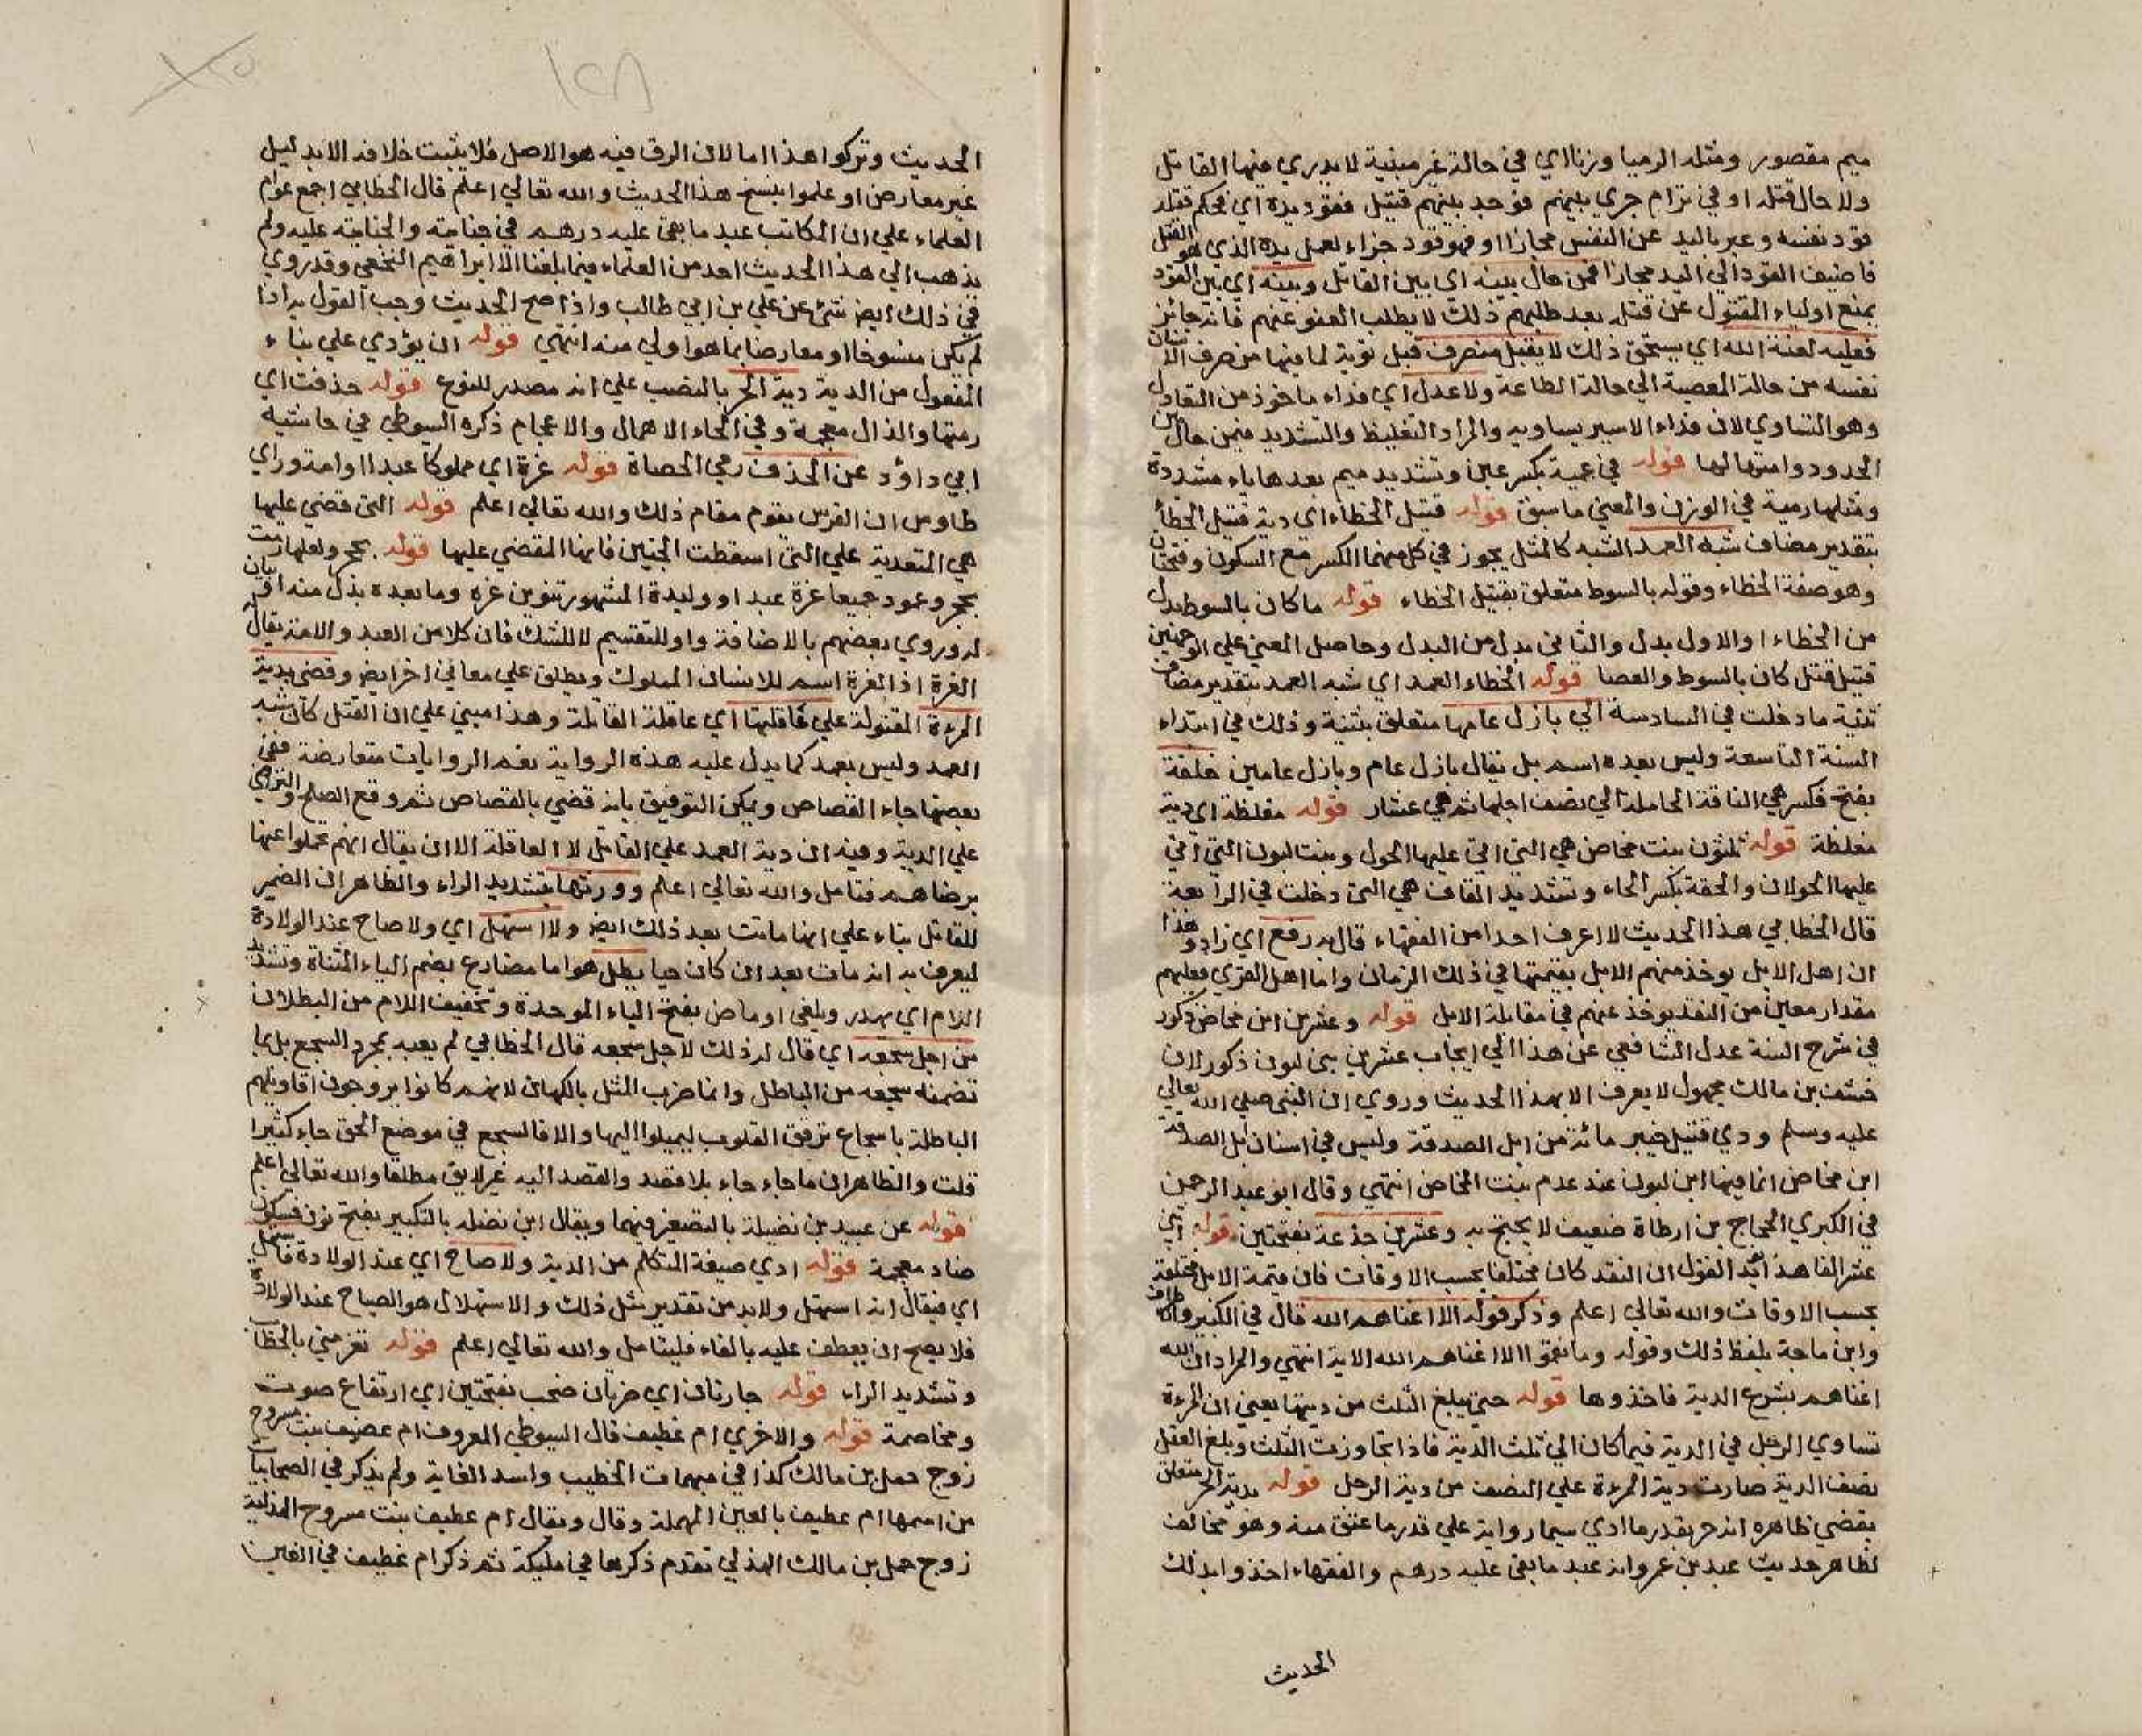 ميم مقصور ومثله الرميا وزنا اي في حالة غير مبنية لا يدري فيها القاتل
ولا حال قتله او في ترام جري بينهم فوجد بينهم قتيل فقود يده اي فحكم قتله
قود نفسه وعبر باليد عن النفس مجازا او فهو قود جزاء لعمل يده الذي هو القتل
فاضيف القود الي اليد مجازا فمن حال بينه اي بين القاتل وبينه اي بين القود
بمنع اولياء المقتول عن قتله بعد طلبهم ذلك لا بطلب العفو عنهم فانه جائز
فعليه لعنة الله اي يستحق ذلك لا يقبل منه صرف قيل توبة لما فيها من صرف الانسان
نفسه من حالة المعصية الي حالة الطاعة ولا عدل اي فداء ماخوذ من التعادل
وهو التساوي لان فداء الاسير يساويه والمراد التغليظ والتشديد فيمن حال بين
الحدود وامثالها قوله في عمية بكسر عين وتشديد ميم بعدها ياء مشددة
ومثلها رمية في الوزن والمعني ما سبق قوله قتيل الخطاء اي دية قتيل الخطأ
بتقدير مضاف شبه العمد الشبه كالمثل يجوز في كل منهما الكسر مع السكون وفتحتان
وهو صفة الخطاء وقوله بالسوط متعلق بقتيل الخطاء قوله ما كان بالسوط بدل
من الخطاء او الاول بدل والثاني بدل من البدل وحاصل المعني علي الوجهين
قتيل قتل كان بالسوط والعصا قوله الخطاء العمد اي شبه العمد بتقدير مضاف
ثنية ما دخلت في السادسة الي بازل عامها متعلق بثنية وذلك في ابتداء
السنة التاسعة وليس بعده اسم بل يقال بازل عام وبازل عامين خلفة
بفتح فكسر هي الناقة الحاملة الي نصف اجلها ثم هي عشار قوله مغلظة اي دية
مغلظة قوله ثلثون بنت مخاض هي التي اتي عليها الحول وبنت لبون التي اتي
عليها الحولان والحقة بكسر الحاء وتشديد القاف هي التي دخلت في الرابعة
قال الخطابي هذا الحديث لا اعرف احدا من الفقهاء قال به رفع اي زاد وهذا
ان اهل الابل يوخذ منهم الابل بقيمتها في ذلك الزمان واما اهل القري فعليهم
مقدار معين من النقد يوخذ عنهم في مقابلة الابل قوله وعشرين ابن مخاض ذكور
في شرح السنة عدل الشافعي عن هذا الي ايجاب عشرين بني لبون ذكور لان
خشف بن مالك مجهول لا يعرف الا بهذا الحديث وروي ان النبي صلي الله تعالي
عليه وسلم ودي قتيل خيبر مائة من ابل الصدقة وليس في اسنان ابل الصدقة
ابن مخاض انما فيها ابن لبون عند عدم بنت المخاض انتهي وقال ابو عبد الرحمن
في الكبري الحجاج بن ارطاة ضعيف لا يحتج به وعشرين جذعة بفتحتين قوله اثني
عشر الفا هذا القول ان النقد كان مختلفا بحسب الاوقات فان قيمة الابل مختلفة
بحسب الاوقات والله تعالي اعلم وذكر قوله الا اغناهم الله قال في الكبير
وابن ماجة بلفظ ذلك وقوله وما نقموا الا اغناهم الله الاية انتهي والمراد ان الله
اغناهم بشرع الدية فاخذوها قوله حتي يبلغ الثلث من ديتها يعني ان المرءة
تساوي الرجل في الدية فيما كان الي ثلث الدية فاذا تجاوزت الثلث وبلغ العقل
نصف الدية صارت دية المرءة علي النصف من دية الرجل قوله بدية الحر متعلق
يقضي ظاهره انه حر بقدر ما ادي سيما رواية علي قدر ما عتق منه وهو مخالف
لظاهر حديث عبد بن عمر وانه عبد ما بقي عليه درهم والفقهاء اخذوا بذلك
الحديث
الحديث وتركوا هذا اما لان الرق فيه هو الاصل فلا يثبت خلافه الا بدليل
غير معارض او علموا بنسخ هذا الحديث والله تعالي اعلم قال الخطابي اجمع عوام
العلماء علي ان المكاتب عبد ما بقي عليه درهم في جنايته والجناية عليه ولم
يذهب الي هذا الحديث احد من العلماء فيما بلغنا الا ابراهيم النخعي وقد روي
في ذلك ايض شئ عن علي بن ابي طالب واذا صح الحديث وجب القول به اذا
لم يكن منسوخا او معارضا بما هو اولي منه انتهي قوله ان يؤدي علي بناء
المفعول من الدية دية الحر بالنصب علي انه مصدر للنوع قوله حذفت اي
رمتها والذال معجمة وفي الحاء الاهمال والاعجام ذكره السيوطي في حاشية
ابي داؤد عن الحذف رمي الحصاة قوله غرة اي مملوكا عبدا او امة وراي
طاوس ان الفرس يقوم مقام ذلك والله تعالي اعلم قوله التي قضي عليها
هي المتعدية علي التي اسقطت الجنين فانها المقضي عليها قوله بحجر ولعلها رمت
بحجر وعمود جميعا غرة عبد او وليدة المشهور تنوين غره وما بعده بدل منه او بيان
له وروي بعضهم بالاضافة واو للتقسيم لا للشك فان كلا من العبد والامة يقال له
الغرة اذ الغرة اسم للانسان المملوك ويطلق علي معاني اخر ايض وقضي بدية
المرءة المقتولة علي عاقلتها اي عاقلة القاتلة وهذا مبني علي ان القتل كان شبه
العمد وليس بعمد كما يدل عليه هذه الرواية نعم الروايات متعارضة ففي
بعضها جاء القصاص ويمكن التوفيق بانه قضي بالقصاص ثم وقع الصلح والتراضي
علي الدية وفيه ان دية العمد علي القاتل لا العاقلة الا ان يقال انهم تحملوا عنها
برضاهم فتامل والله تعالي اعلم وورثها بتشديد الراء والظاهر ان الضمير
للقاتل بناء علي انها ماتت بعد ذلك ايض ولا استهل اي ولا صاح عند الولادة
ليعرف به انه مات بعد ان كان حيا يطل هو اما مضارع بضم الياء المثناة وتشديد
اللام اي يهدر ويلغي او ماض بفتح الباء الموحدة وتخفيف اللام من البطلان
من اجل سجعه اي قال له ذلك لاجل سجعه قال الخطابي لم يعبه بمجرد السجع بل بما
تضمنه سجعه من الباطل وانما ضرب المثل بالكهان لانهم كانوا يروجون اقاويلهم
الباطلة باسجاع ترقق القلوب ليميلوا اليها والا فالسجع في موضع الحق جاء كثيرا
قلت والظاهر ان ما جاء جاء بلا قصد والقصد اليه غير لايق مطلقا والله تعالي اعلم
قوله عن عبيد بن نضيلة بالتصغير فيهما ويقال ابن نضله بالتكبير بفتح نون فسكون
ضاد معجمة قوله ادي صيغة المتكلم من الدية ولا صاح اي عند الولادة فاستهل
اي فيقال انه استهل ولابد من تقدير مثل ذلك والاستهلال هو الصياح عند الولادة
فلا يصح ان يعطف عليه بالفاء فليتامل والله تعالي اعلم قوله تغرمني بالخطاب
وتشديد الراء قوله جارتان اي ضرتان صخب بفتحتين اي ارتفاع صوت
ومخاصمة قوله والاخري ام غطيف قال السيوطي المعروف ام عفيف بنت مسروح
زوج حمل بن مالك كذا في مبهمات الخطيب واسد الغابة ولم يذكر في الصحابيات
من اسمها ام عطيف بالعين المهملة وقال ويقال ام عطيف بنت مسروح الهذلية
زوج حمل بن مالك الهذلي تقدم ذكرها في مليكة ثم ذكر ام غطيف في الغين